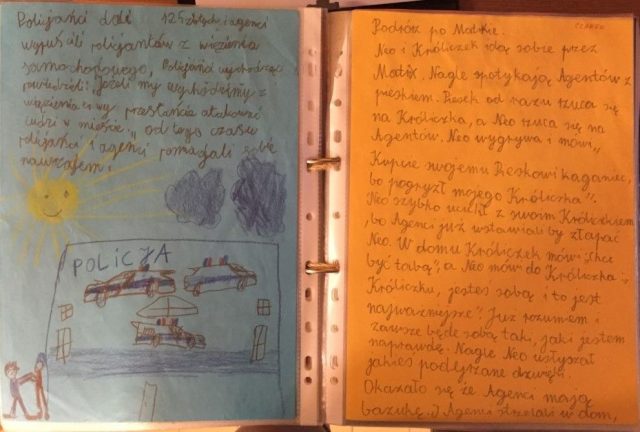 Policjanci dali 125 złotych i agenci
wypuścili policjantów z więzienia
samochodowego, Policjanci wychodząc
powiedzieli: "Jeżeli my wychodzimy z
więzienia wy przestańcie atakować
ludzi w mieście." Od tego czasu
policjanci i agenci pomagali sobie
nawzajem!
POLICJA
Podróż po Matrixie.
Neo i Króliczek idą sobie przez
Matrix. Nagle spotykają Agentów z
pieskiem. Piesek od razu rzuca się
na Króliczka, a Neo rzuca się na
Agentów. Neo wygrywa i mówi „
Kupcie swojemu Pieskowi kaganiec,
bo pogryzł mojego Króliczka".
Neo szybko uciekł z swoim Króliczkiem
, bo Agenci już wstawali by złapać
Neo. W domu Króliczek mówi „Chcę
być tobą", a Neo mówi do Króliczka: „
Króliczku, jesteś sobą i to jest
najważniejsze". Już rozumiem i
zawsze będę sobą taki, jaki jestem
naprawdę. Nagle Neo usłyszał
jakieś podejrzane dźwięki.
Okazało się że Agenci mają
bazukę. :) Agenci strzelali w dom,